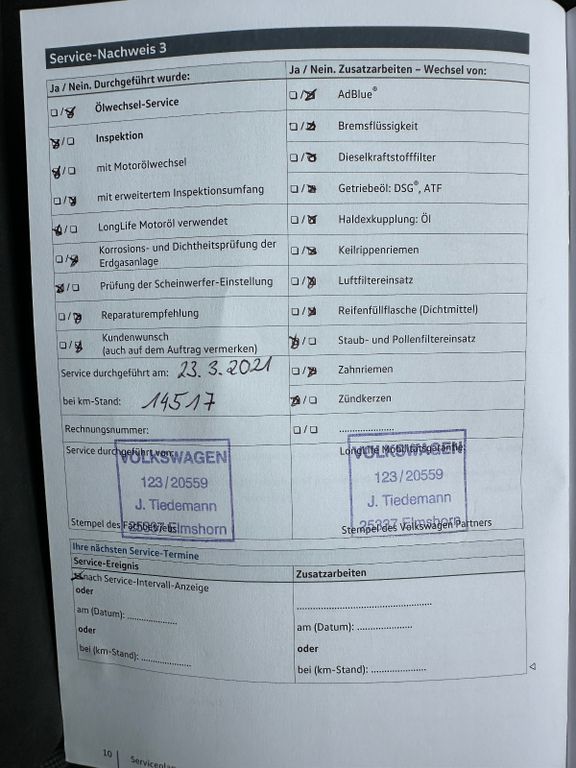 Service-Nachweis 3
Ja / Nein. Durchgeführt wurde:
Ölwechsel-Service
Inspektion
mit Motorölwechsel
mit erweitertem Inspektionsumfang
LongLife Motoröl verwendet
Korrosions- und Dichtheitsprüfung der
Erdgasanlage
Prüfung der Scheinwerfer-Einstellung
Reparaturempfehlung
Kundenwunsch
(auch auf dem Auftrag vermerken)
Service durchgeführt am: 23.3.2021
bei km-Stand: 14517
Rechnungsnummer:
Ja / Nein. Zusatzarbeiten – Wechsel von:
AdBlue®
Bremsflüssigkeit
Dieselkraftstofffilter
Getriebeöl: DSG®, ATF
Haldexkupplung: Öl
Keilrippenriemen
Luftfiltereinsatz
Reifenfüllflasche (Dichtmittel)
Staub- und Pollenfiltereinsatz
Zahnriemen
Zündkerzen
....................
Service durchgeführt von:
VOLKSWAGEN
123/20559
J. Tiedemann
25337 Elmshorn
Stempel des
LongLife Mobilitätsgarantie:
VOLKSWAGEN
123/20559
J. Tiedemann
25337 Elmshorn
Stempel des Volkswagen Partners
Ihre nächsten Service-Termine
Service-Ereignis
nach Service-Intervall-Anzeige
oder
am (Datum): ..................
oder
bei (km-Stand): ..................
Zusatzarbeiten
.................................................
am (Datum): ....................
oder
bei (km-Stand): ....................
10